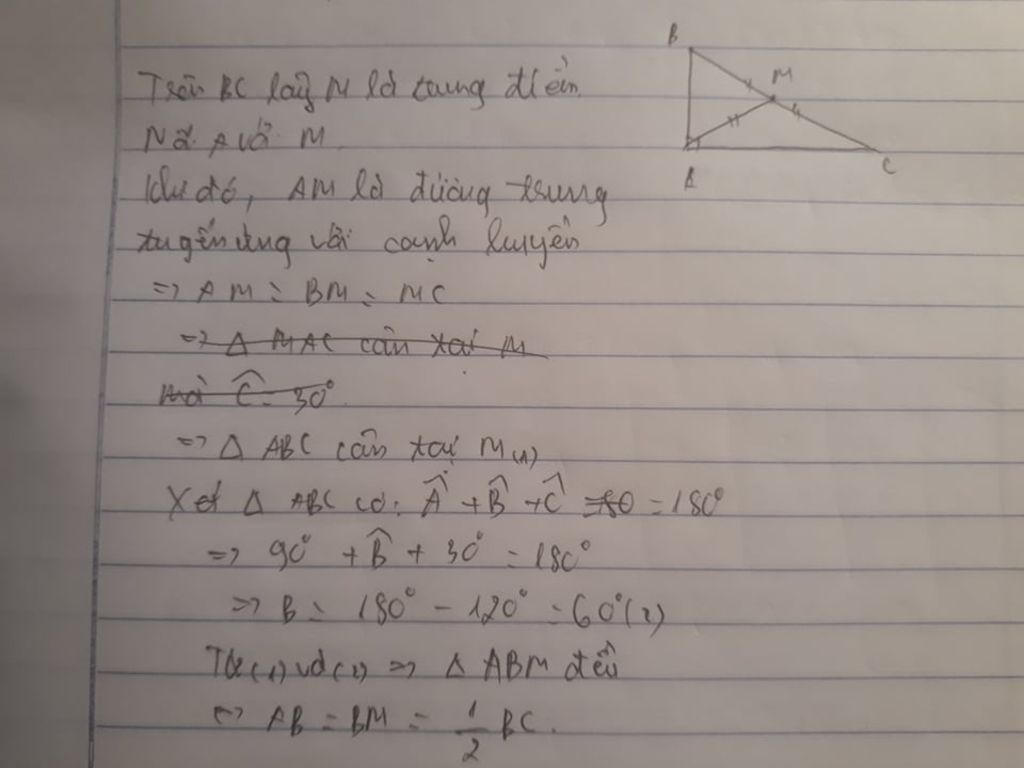 B
M
A
C
Trên BC lấy M là trung điểm
Nối A với M
Khi đó, AM là đường trung
tuyến ứng với cạnh huyền
=> AM = BM = MC
=> Δ MAC cân tại M
mà Ĉ = 30°
=> Δ ABC cân tại M (1)
Xét Δ ABC có: Â + B̂ + Ĉ = 180°
=> 90° + B̂ + 30° = 180°
=> B = 180° - 120° = 60° (2)
Từ (1) và (2) => Δ ABM đều
<=> AB = BM = 1/2 BC.